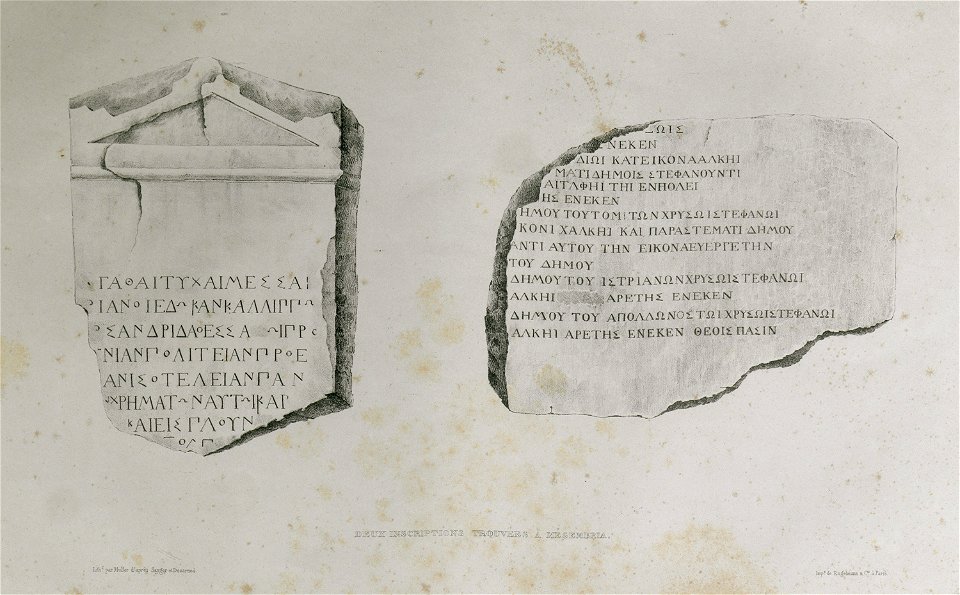 ΓΑΘΑΙΤΥΧΑΙΜΕΣΣΑΙ
ΡΙΑΝΟΙΕΔΩΚΑΝΚΑΛΛΙΓΓΩ
ΟΣΑΝΔΡΙΔΑΘΕΣΣΑ ΩΙΓΡΟ
ΝΙΑΝΓΟΛΙΤΕΙΑΝΓΡΟΕ
ΑΝΙΣΟΤΕΛΕΙΑΝΓΑΝ
ΧΡΗΜΑΤΩΝΑΥΤΩΙΚΑΙ
ΚΑΙΕΙΣΓΛΟΥΝ
ΩΙΣ
ΕΝΕΚΕΝ
ΔΙΩΙ ΚΑΤΕΙΚΟΝΑΑΛΚΗΙ
ΜΑΤΙ ΔΗΜΟΙΣ ΣΤΕΦΑΝΟΥΝΤΙ
ΑΙΤΑΦΗΙ ΤΗΙ ΕΝΠΟΛΕΙ
ΗΣ ΕΝΕΚΕΝ
ΗΜΟΥ ΤΟΥ ΤΟΜΙΤΩΝ ΧΡΥΣΩΙΣΤΕΦΑΝΩΙ
ΚΟΝΙ ΧΑΛΚΗΙ ΚΑΙ ΠΑΡΑΣΤΕΜΑΤΙ ΔΗΜΟΥ
ΑΝΤΙ ΑΥΤΟΥ ΤΗΝ ΕΙΚΟΝΑΕΥΕΡΓΕΤΗΝ
ΤΟΥ ΔΗΜΟΥ
ΔΗΜΟΥ ΤΟΥ ΙΣΤΡΙΑΝΩΝΧΡΥΣΩΙΣΤΕΦΑΝΩΙ
ΑΛΚΗΙ ΑΡΕΤΗΣ ΕΝΕΚΕΝ
ΔΗΜΟΥ ΤΟΥ ΑΠΟΛΛΩΝΟΣΤΩΙΧΡΥΣΩΙΣΤΕΦΑΝΩΙ
ΑΛΚΗΙ ΑΡΕΤΗΣ ΕΝΕΚΕΝ ΘΕΟΙΣ ΠΑΣΙΝ
DEUX INSCRIPTIONS TROUVÉES A MESEMBRIA.
Lith. par Muller d'après Sayger et Desarnod
Imp. de Engelmann & Cie à Paris